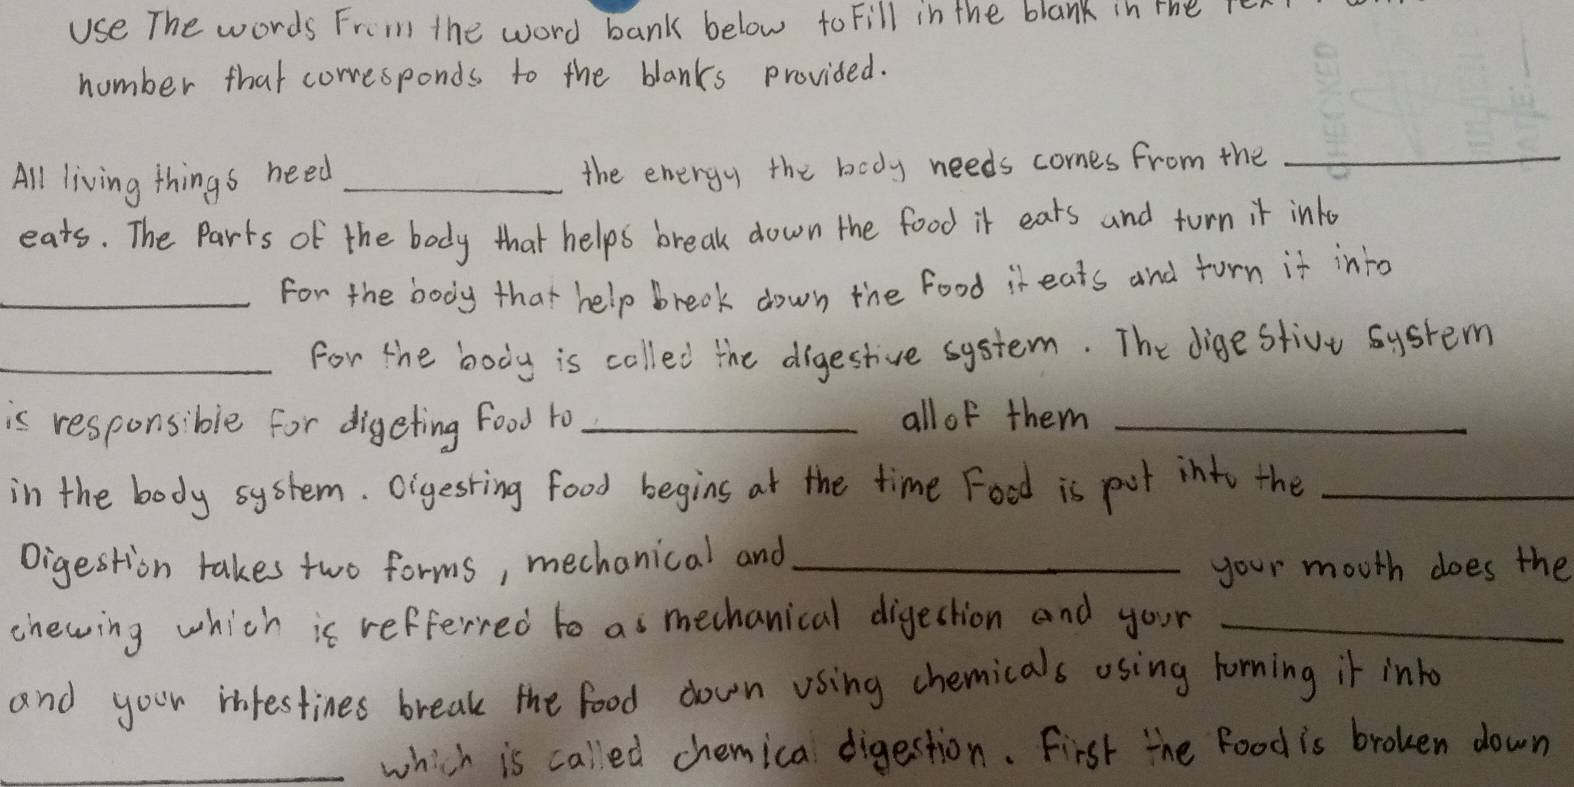 Use The words From the word bank below to Fill in the blank in the
number that corresponds to the blanks provided.
CHECKED
DATE:
All living things need ____________ the energy the body needs comes From the ____________
eats. The Parts of the body that helps break down the food it eats and turn it into
____________ For the body that help break down the Food it eats and turn it into
____________ For the body is called the digestive system. The digestive system
is responsible For digeting Food to ____________ all of them ____________
in the body system. Digesting food begins at the time Food is put into the ____________
Digestion takes two forms, mechanical and ____________ your mouth does the
chewing which is refferred to as mechanical digestion and your ____________
and your intestines break the food down using chemicals using turning it into
____________ which is called chemical digestion. First the Food is broken down